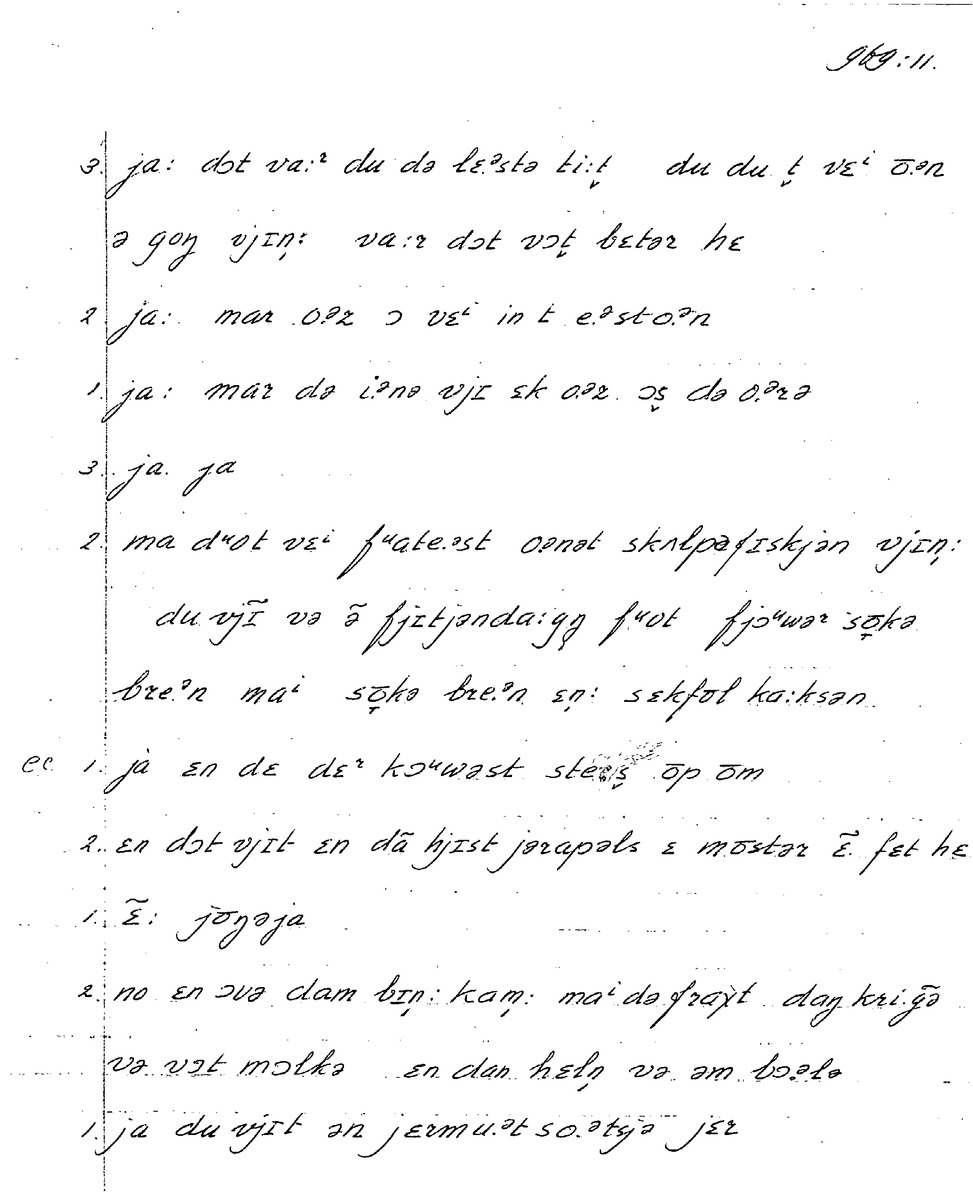 g6g:11.
3. ja: dɔt va:ʳ du də lɛ.ᵊstə ti:t̬ du du t̬ vɛⁱ ō.ᵊn
ə goŋ vjɪn̩: va:r dɔt vɔt̬ bɛtər hɛ
2 ja: mar o.ᵊr ɔ vɛⁱ in t e.ᵊsto.ᵊn
1. ja: mar də i.ᵊnə vjɪ ɛk o.ᵊr ɔs̬ də o.ᵊrə
3. ja. ja
2. ma dᵘot vɛⁱ fᵘate.ᵊst oənət skʌlpəfɪskjən vjɪn̩:
du vjɪ̃ və ə̃ fjɪtjənda:gŋ̩ fᵘot fjɔᵘwər so̞kə
bre.ᵊn maⁱ so̞kə bre.ᵊn ɛn̩: sɛkfʊl ka:ksən
ec 1. ja ɛn dɛ dɛʳ kɔᵘwəst op om
2. ɛn dɔt vjɪt ɛn dã hjɪst jərapəls ɛ mʊstər ɛ̃. fɛt hɛ
1. ɛ̃: jʊŋəja
2. no ɛn ɔvə dam bɪn̩: kam̩: maⁱ də fraχt daŋ kri.g̃ə
və vɔt mɔlkə ɛn dan hɛln̩ və əm bɔ.ᵊlə
1. ja du vjɪt ən jɛrmu.ᵊt so.ᵊtsjə jɛr